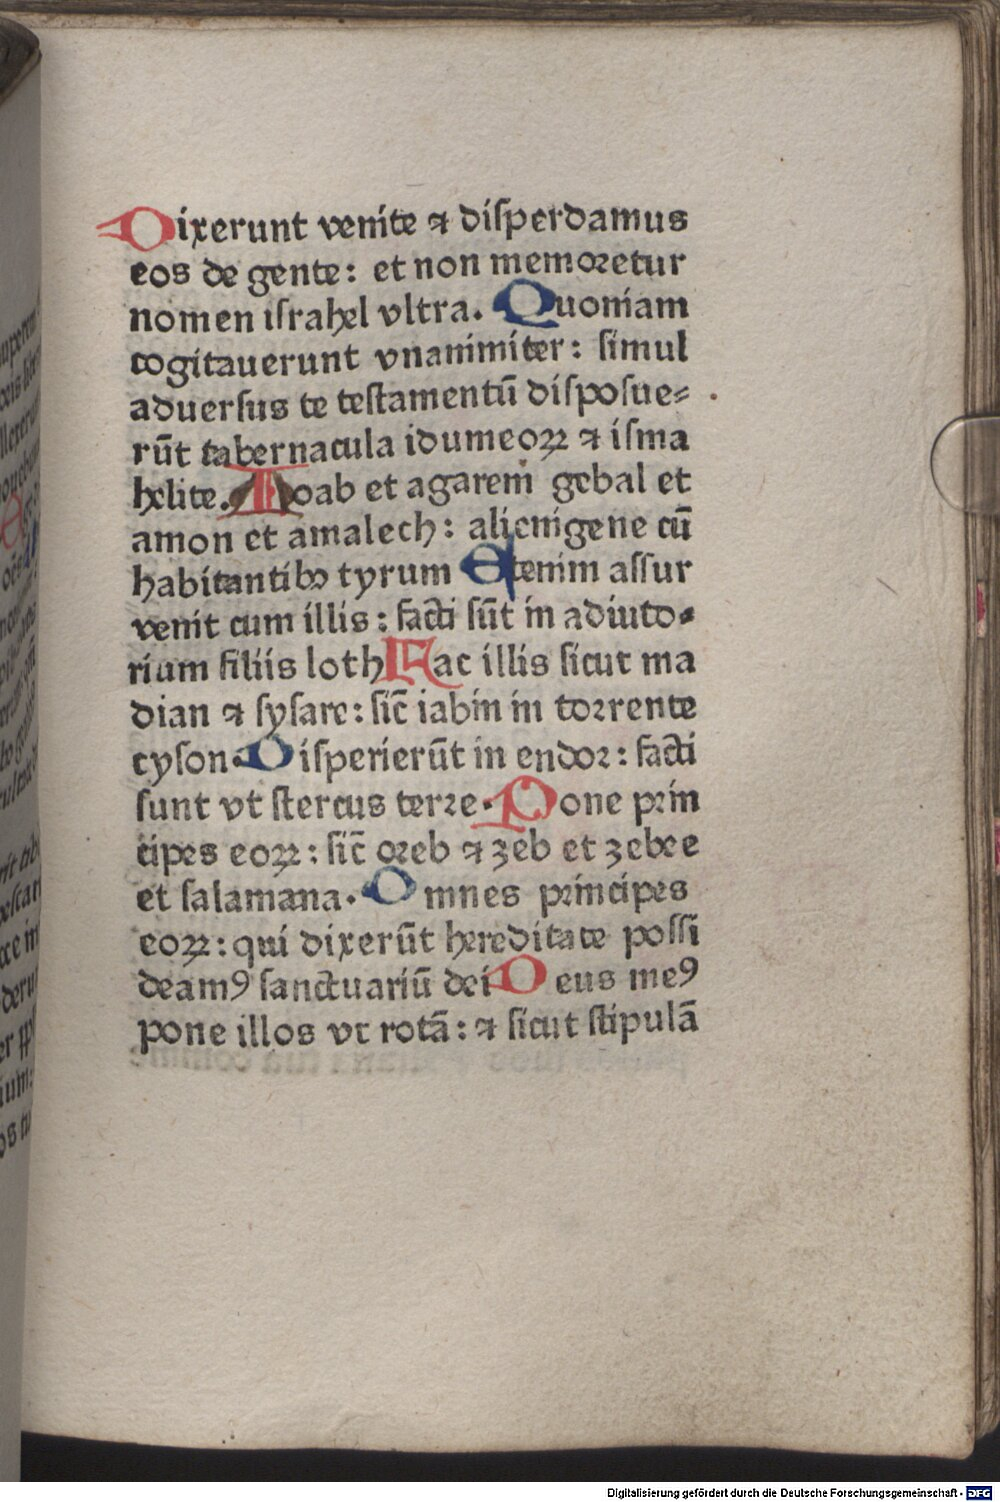 Dixerunt venite ⁊ disperdamus
eos de gente: et non memoretur
nomen israhel vltra. Quoniam
cogitauerunt vnanimiter: simul
aduersus te testamentū disposue-
rūt tabernacula idumeoꝝ ⁊ isma
helite. Moab et agareni gebal et
amon et amalech: alienigene cū
habitantibꝫ tyrum Etenim assur
venit cum illis: facti sūt in adiuto-
rium filiis loth Fac illis sicut ma
dian ⁊ sysare: sic̄ iabin in torrente
cyson. Disperierūt in endor: facti
sunt vt stercus terre. Pone prin
cipes eoꝝ: sic̄ oreb ⁊ zeb et zebee
et salamana. Omnes principes
eoꝝ: qui dixerūt hereditate possi
deamꝰ sanctuariū dei Deus meꝰ
pone illos vt rotā: ⁊ sicut stipulā
Digitalisierung gefördert durch die Deutsche Forschungsgemeinschaft - DFG